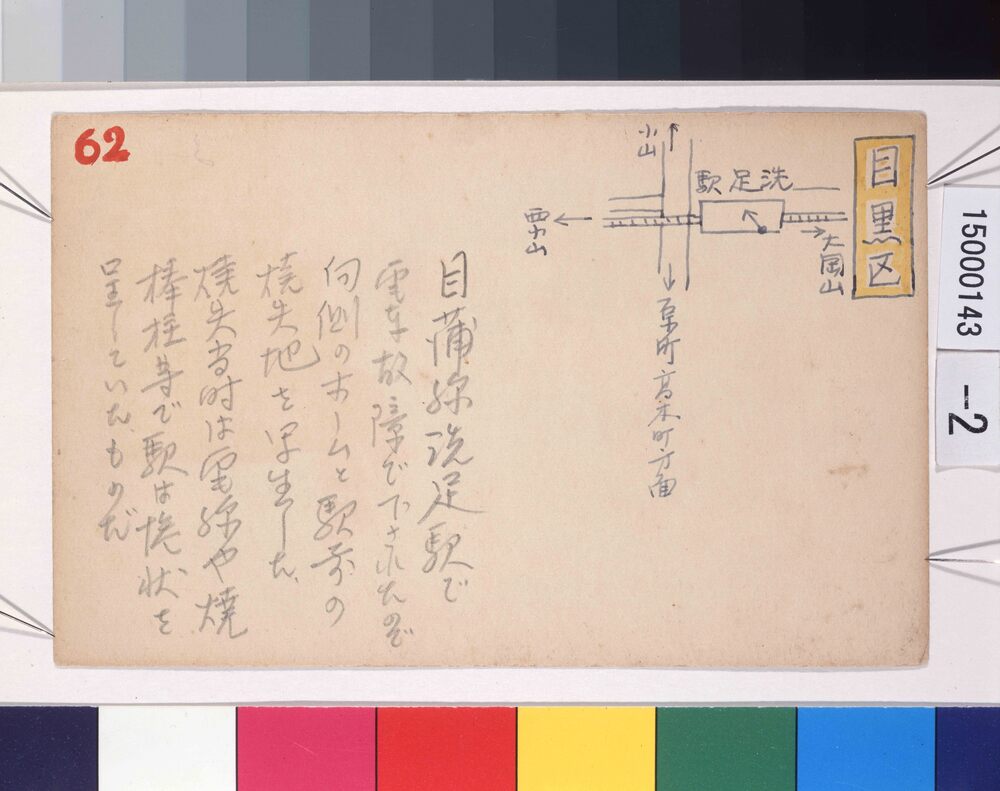 62
目黒区
洗足駅
小山
西小山
大岡山
原町高木町方面
目蒲線洗足駅で
電車故障で下されたので
向側のホームと駅前の
焼失地を写生した
焼失当時は電線や焼
棒杭等で駅は惨状を
呈していたものだ
15000143
-2